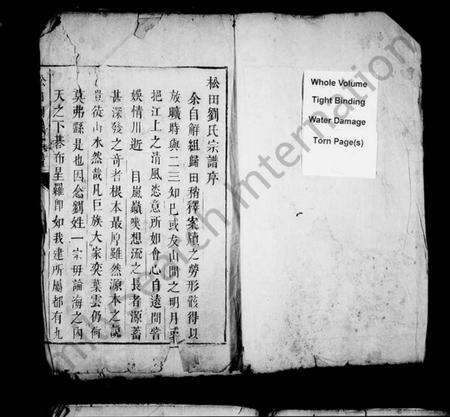 松田劉氏宗譜序
余自解組歸田稍釋案牘之勞形骸得以
放曠時與二三知已或友山間之明月或
挹江上之清風恣意所如會心自遠間嘗
娛情川逝目嵐巔喚想流之長者源蓄
甚深發之奇者根本最厚雖然源本之說
豈從山水然哉凡巨族大家奕葉雲仍何
莫弗縣是也因念劉姓一宗毋論海之內
天之下碁布星羅卽如我建所屬都有九
Whole Volume
Tight Binding
Water Damage
Torn Page(s)